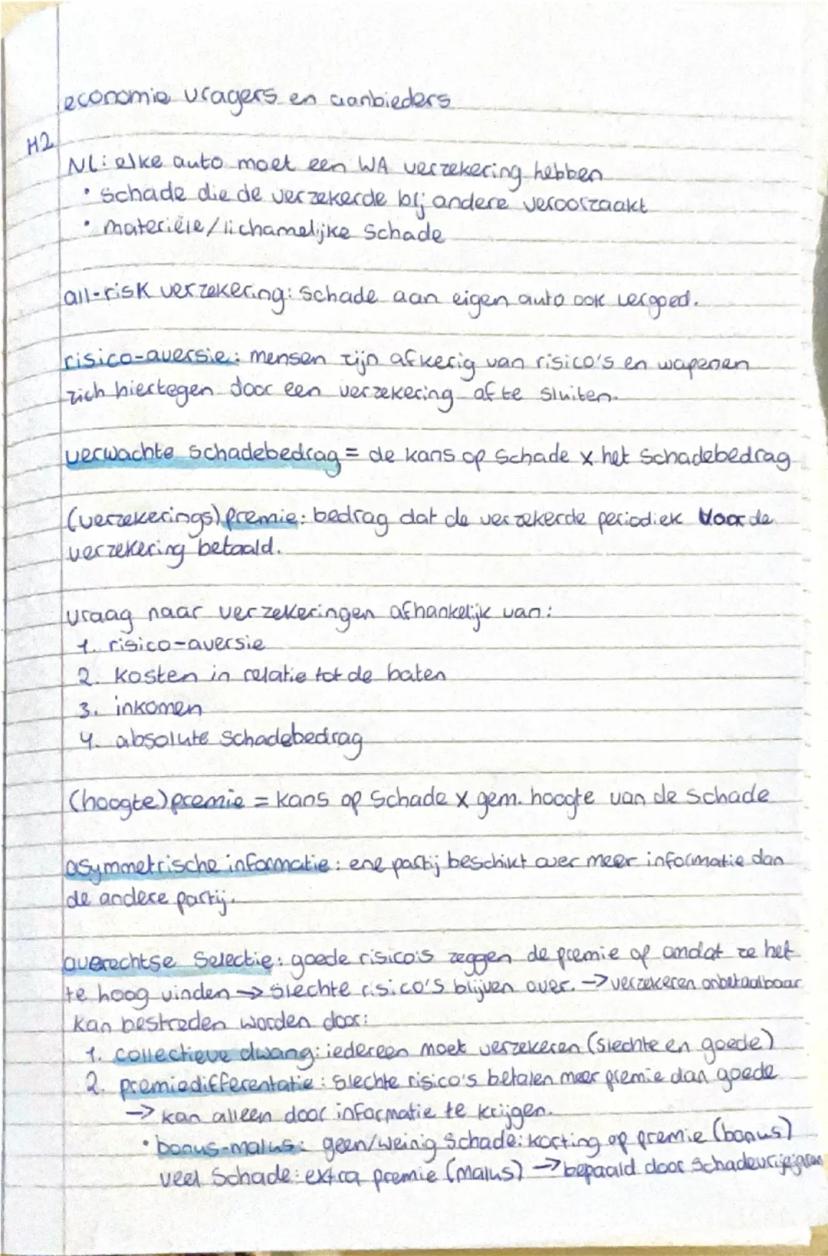 economie vragers en aanbieders
H2
NL: elke auto moet een WA verzekering hebben
• schade die de verzekerde bij andere veroorzaakt
• materiële/lichamelijke schade
all-risk verzekering: schade aan eigen auto ook vergoed.
risico-aversie: mensen zijn afkerig van risico's en wapenen
zich hiertegen door een verzekering af te sluiten.
verwachte schadebedrag = de kans op schade x het schadebedrag
(verzekerings)premie: bedrag dat de verzekerde periodiek voor de
verzekering betaald.
vraag naar verzekeringen afhankelijk van:
1. risico-aversie
2. kosten in relatie tot de baten
3. inkomen
4. absolute schadebedrag
(hoogte)premie = kans op schade x gem. hoogte van de schade
asymmetrische informatie: ene partij beschikt over meer informatie dan
de andere partij.
averechtse selectie: goede risico's zeggen de premie op omdat ze het
te hoog vinden → slechte risico's blijven over. → verzekeren onbetaalbaar
kan bestreden worden door:
1. collectieve dwang: iedereen moet verzekeren (slechte en goede)
2. premiedifferentatie: slechte risico's betalen meer premie dan goede
→ kan alleen door informatie te krijgen.
• bonus-malus: geen/weinig schade: korting op premie (bonus)
veel schade: extra premie (malus) → bepaald door schadevrije jaren